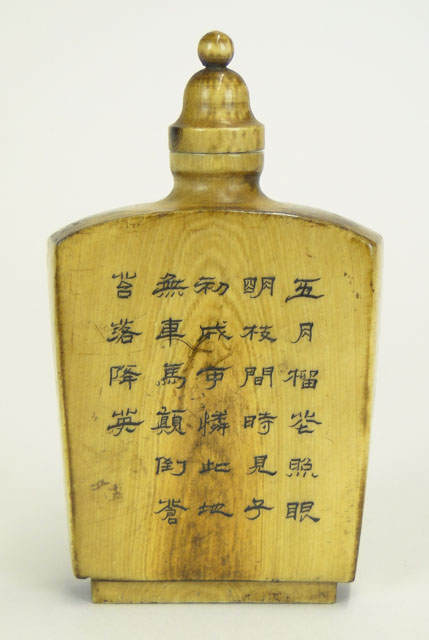 五月榴花照眼
明枝間時見子
初成可憐此地
無車馬顛倒蒼
苔落降英